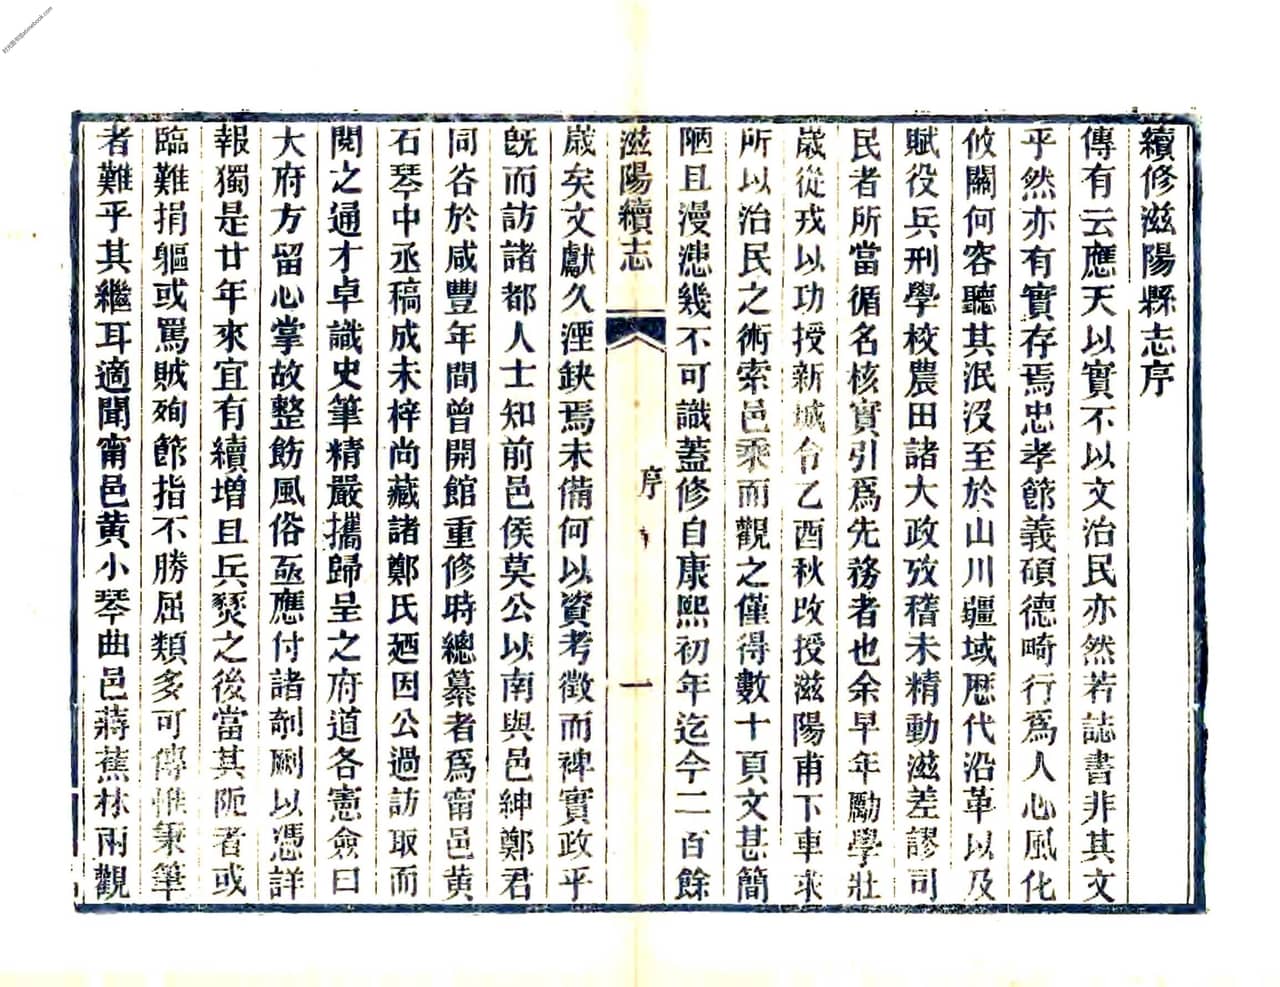 續修滋陽縣志序
傳有云應天以實不以文治民亦然若誌書非其文
乎然亦有實存焉忠孝節義碩德畸行爲人心風化
攸關何容聽其泯沒至於山川疆域歷代沿革以及
賦役兵刑學校農田諸大政攷稽未精動滋差謬司
民者所當循名核實引爲先務者也余早年勵學壯
歲從戎以功授新城令乙酉秋改授滋陽甫下車求
所以治民之術索邑乘而觀之僅得數十頁文甚簡
陋且漫漶幾不可識蓋修自康熙初年迄今二百餘
滋陽續志
序
一
歲矣文獻久湮缺焉未備何以資考徵而裨實政乎
旣而訪諸都人士知前邑侯莫公以南與邑紳鄭君
同谷於咸豐年間曾開館重修時總纂者爲甯邑黄
石琴中丞稿成未梓尚藏諸鄭氏廼因公過訪取而
閱之通才卓識史筆精嚴攜歸呈之府道各憲僉曰
大府方留心掌故整飭風俗亟應付諸剞劂以憑詳
報獨是廿年來宜有續增且兵燹之後當其阨者或
臨難捐軀或罵賊殉節指不勝屈類多可傳惟秉筆
者難乎其繼耳適聞甯邑黄小琴曲邑蔣蕉林兩觀